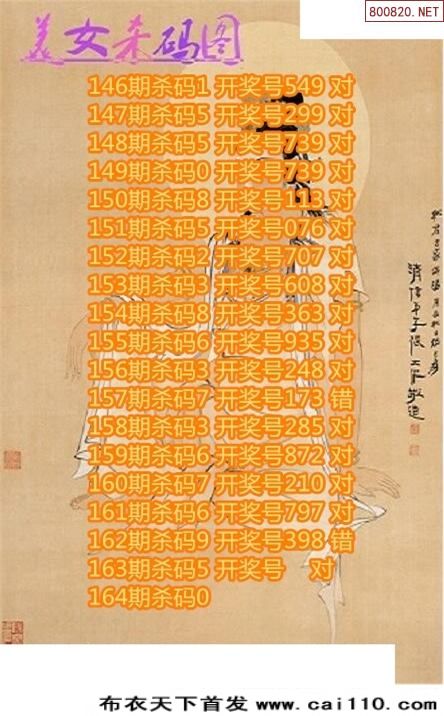 800820.NET
美女杀码图
146期杀码1 开奖号549 对
147期杀码5 开奖号299 对
148期杀码5 开奖号739 对
149期杀码0 开奖号739 对
150期杀码8 开奖号113 对
151期杀码5 开奖号076 对
152期杀码2 开奖号707 对
153期杀码3 开奖号608 对
154期杀码8 开奖号363 对
155期杀码6 开奖号935 对
156期杀码3 开奖号248 对
157期杀码7 开奖号173 错
158期杀码3 开奖号285 对
159期杀码6 开奖号872 对
160期杀码7 开奖号210 对
161期杀码6 开奖号797 对
162期杀码9 开奖号398 错
163期杀码5 开奖号 对
164期杀码0
布衣天下首发 www.cai110.com